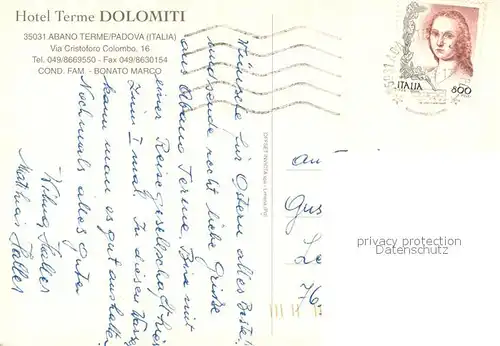 Hotel Terme DOLOMITI
35031 ABANO TERME/PADOVA (ITALIA)
Via Cristoforo Colombo, 16
Tel. 049/8669550 - Fax 049/8630154
COND. FAM. - BONATO MARCO
ITALIA
800
Wünsche für Ostern alles Beste!
und sende recht liebe Grüße
aus Abano Terme. Bin mit
einer Reisegesellschaft hier
zum I mal. In diesen
kann man es gut aushalten
Nochmals alles Gute
Haller
Matthias Haller
an
Gus
Le
76.
privacy protection
Datenschutz